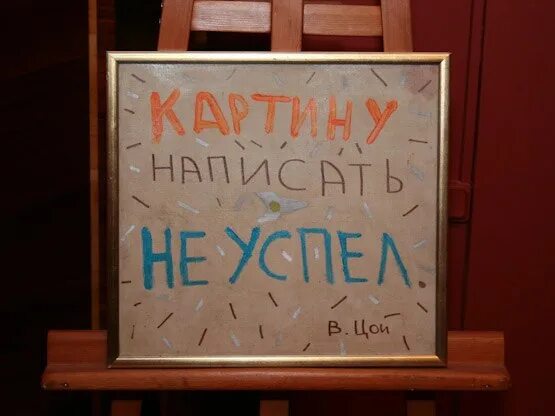 КАРТИНУ
НАПИСАТЬ
НЕ УСПЕЛ.
В. Цой